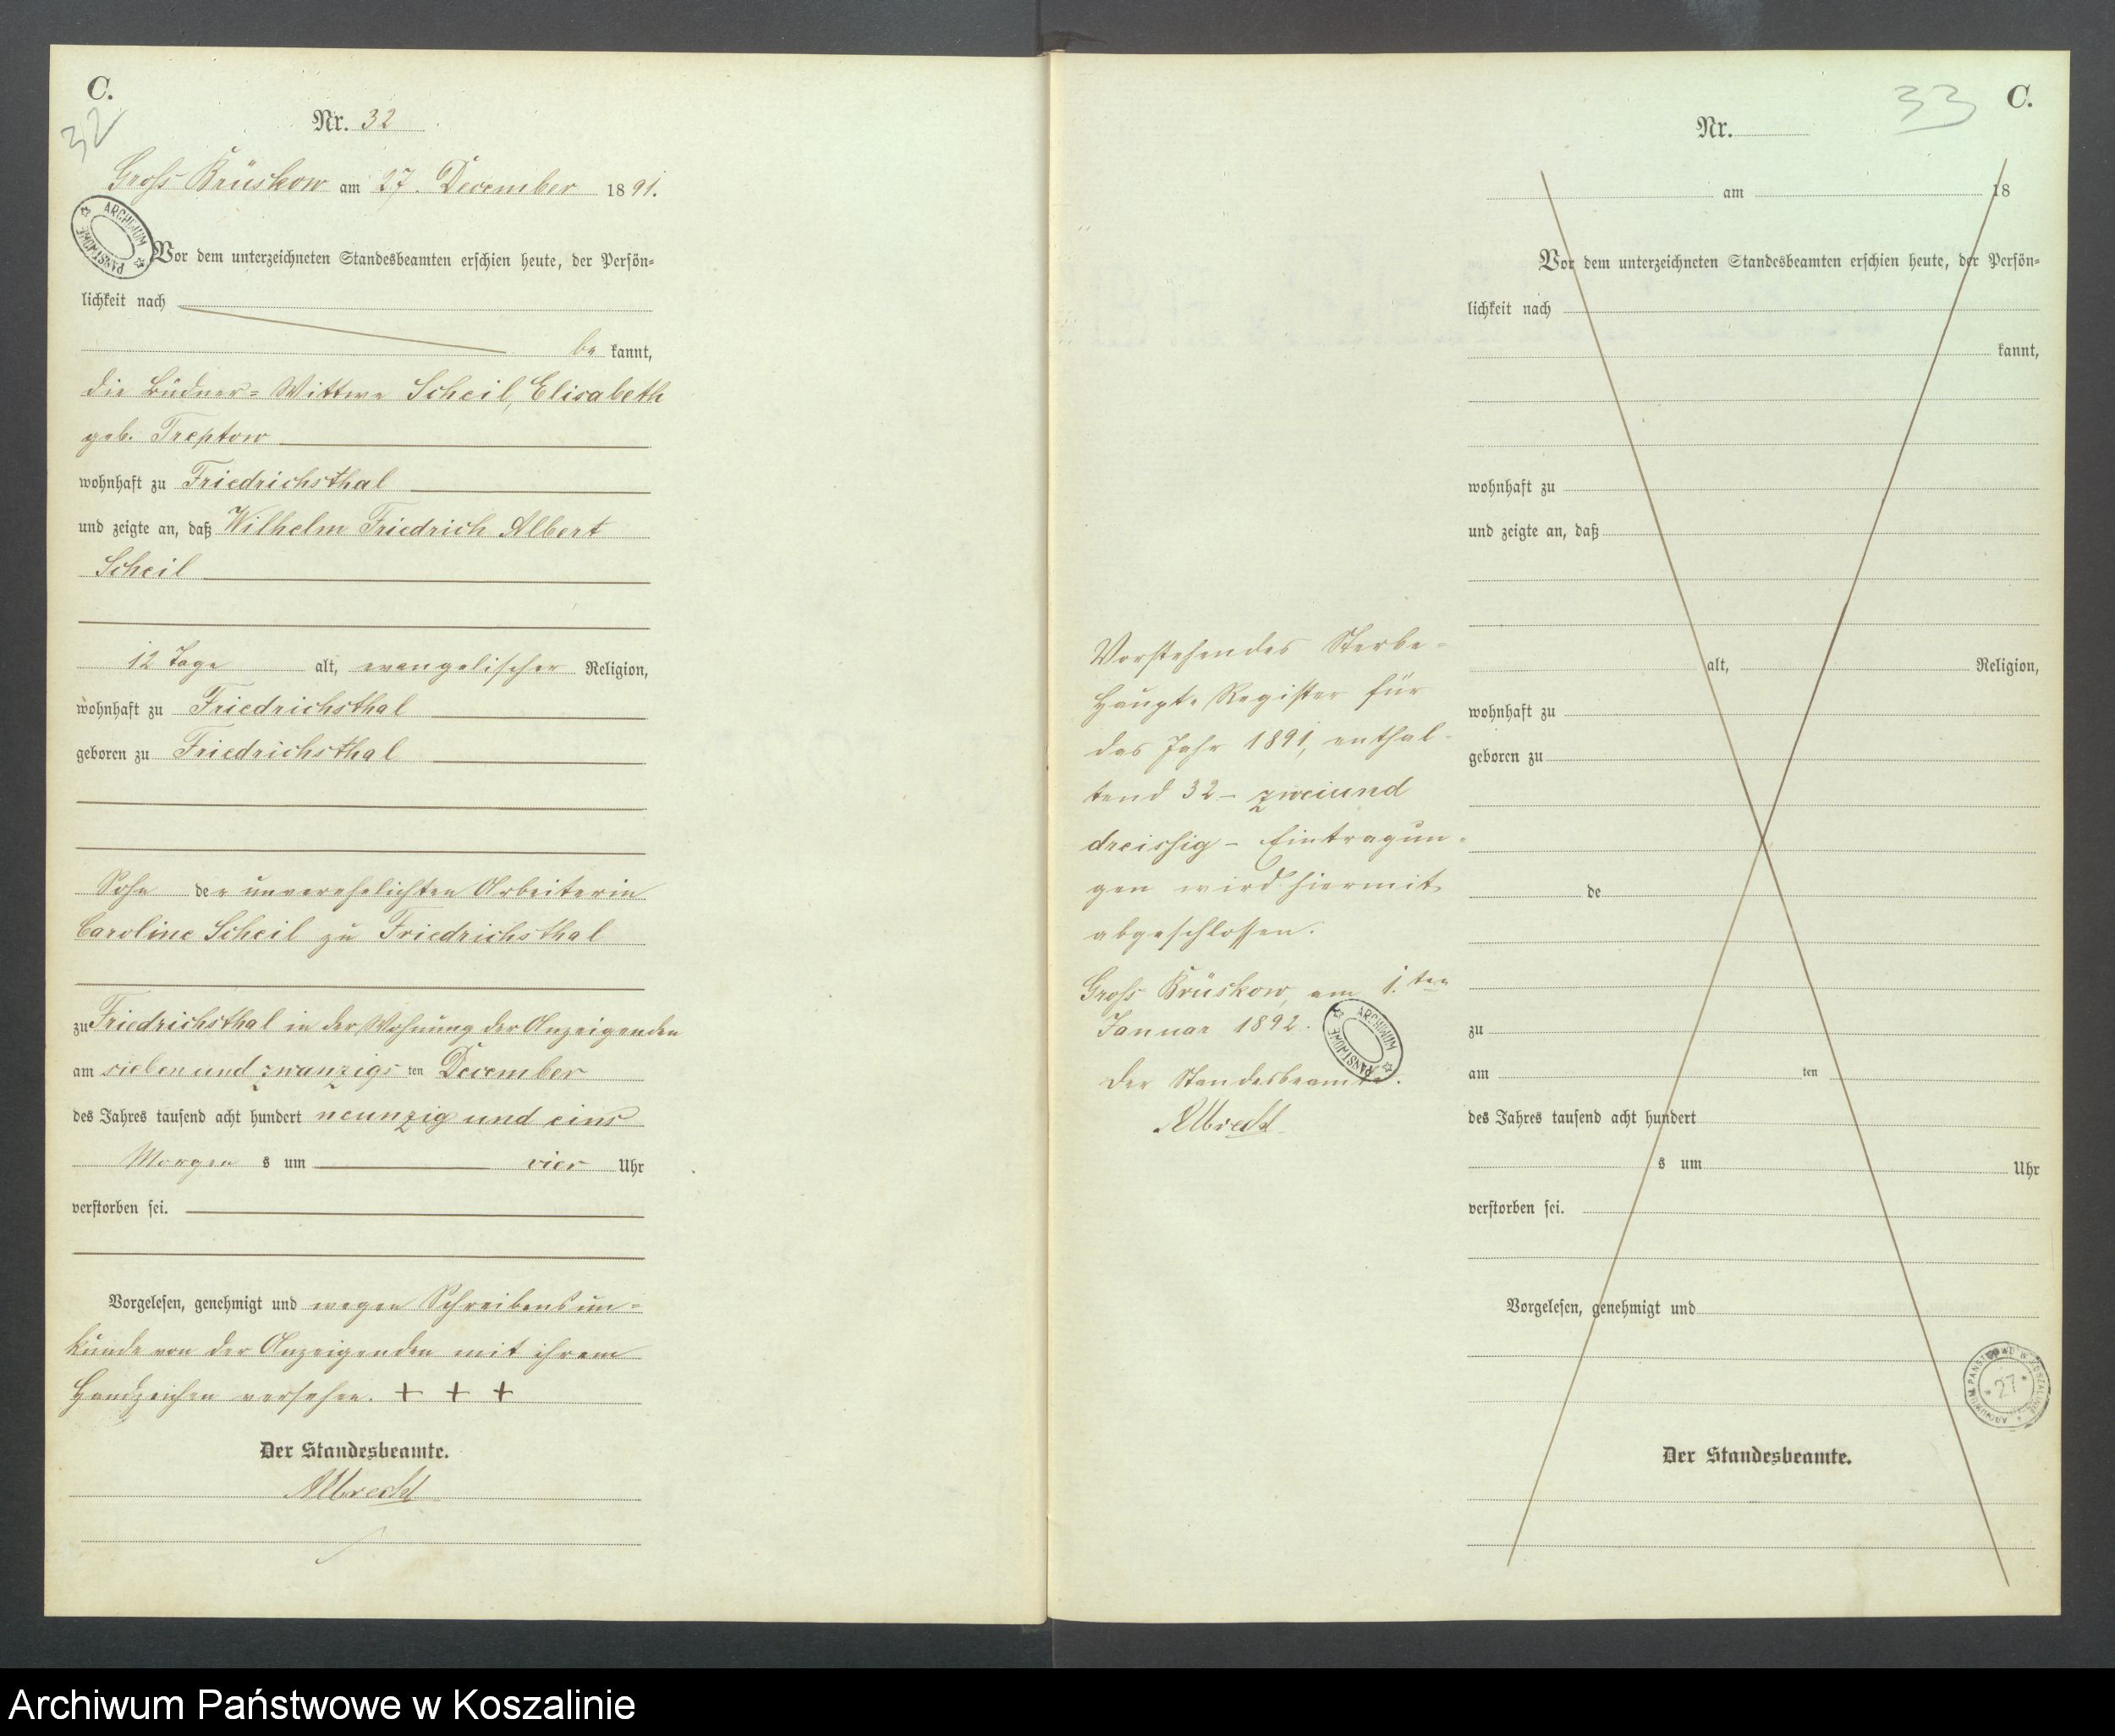 C.
32
Nr. 32
Gross Brüskow am 27. December 1891.
ARCHIWUM PAŃSTWOWE
Vor dem unterzeichneten Standesbeamten erschien heute, der Persön=
lichkeit nach
be kannt,
die Büdner=Wittwe Scheil, Elisabeth
geb. Treptow
wohnhaft zu Friedrichsthal
und zeigte an, daß Wilhelm Friedrich Albert
Scheil
12 Tage alt, evangelischer Religion,
wohnhaft zu Friedrichsthal
geboren zu Friedrichsthal
Sohn der unverehelichten Arbeiterin
Caroline Scheil zu Friedrichsthal
zu Friedrichsthal in der Wohnung der Anzeigenden
am sieben und zwanzigs ten December
des Jahres tausend acht hundert neunzig und eins
Morgen s um vier Uhr
verstorben sei.
Vorgelesen, genehmigt und wegen Schreibensun=
kunde von der Anzeigenden mit ihrem
Handzeichen versehen. + + +
Der Standesbeamte.
Albrecht
Vorstehendes Sterbe=
Haupt-Register für
das Jahr 1891, enthal-
tend 32 - zweiund
dreissig - Eintragun=
gen wird hiermit
abgeschlossen.
Gross Brüskow, am 1.ten
Januar 1892.
Der Standesbeamte.
Albrecht
ARCHIWUM PAŃSTWOWE
33
C.
Nr.
am 18
Vor dem unterzeichneten Standesbeamten erschien heute, der Persön=
lichkeit nach
kannt,
wohnhaft zu
und zeigte an, daß
alt, Religion,
wohnhaft zu
geboren zu
de
zu
am ten
des Jahres tausend acht hundert
s um Uhr
verstorben sei.
Vorgelesen, genehmigt und
ARCHIWUM PAŃSTWOWE W KOSZALINIE
* 27 *
Der Standesbeamte.
Archiwum Państwowe w Koszalinie